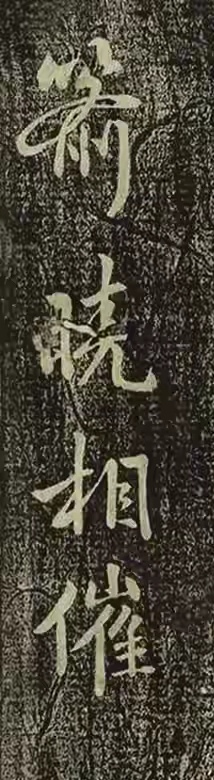 箭曉相催